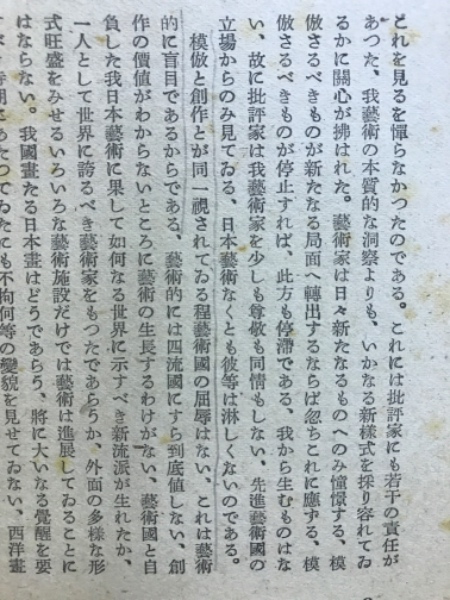 これを見るを憚らなかつたのである。これには批評家にも若干の責任が
あつた、我藝術の本質的な洞察よりも、いかなる新樣式を採り容れてゐ
るかに關心が拂はれた。藝術家は日々新たなるものへのみ憧憬する、模
倣さるべきものが新たなる局面へ轉出するならば忽ちこれに應ずる、模
倣さるべきものが停止すれば、此方も停滯である、我から生むものはな
い、故に批評家は我藝術家を少しも尊敬も同情もしない、先進藝術國の
立場からのみ見てゐる、日本藝術なくとも彼等は淋しくないのである。
模倣と創作とが同一視されてゐる程藝術國の屈辱はない、これは藝術
的に盲目であるからである、藝術的には四流國にすら到底値しない、創
作の價値がわからないところに藝術の生長するわけがない、藝術國と自
負した我日本藝術に果して如何なる世界に示すべき新流派が生れたか、
一人として世界に誇るべき藝術家をもつたであらうか、外面の多樣な形
式旺盛をみせるいろいろな藝術施設だけでは藝術は進展してゐることに
はならない。我國畫たる日本畫はどうであらう、將に大いなる覺醒を要
時期にあたつてゐたにも不拘何等の變貌を見せてゐない、西洋畫